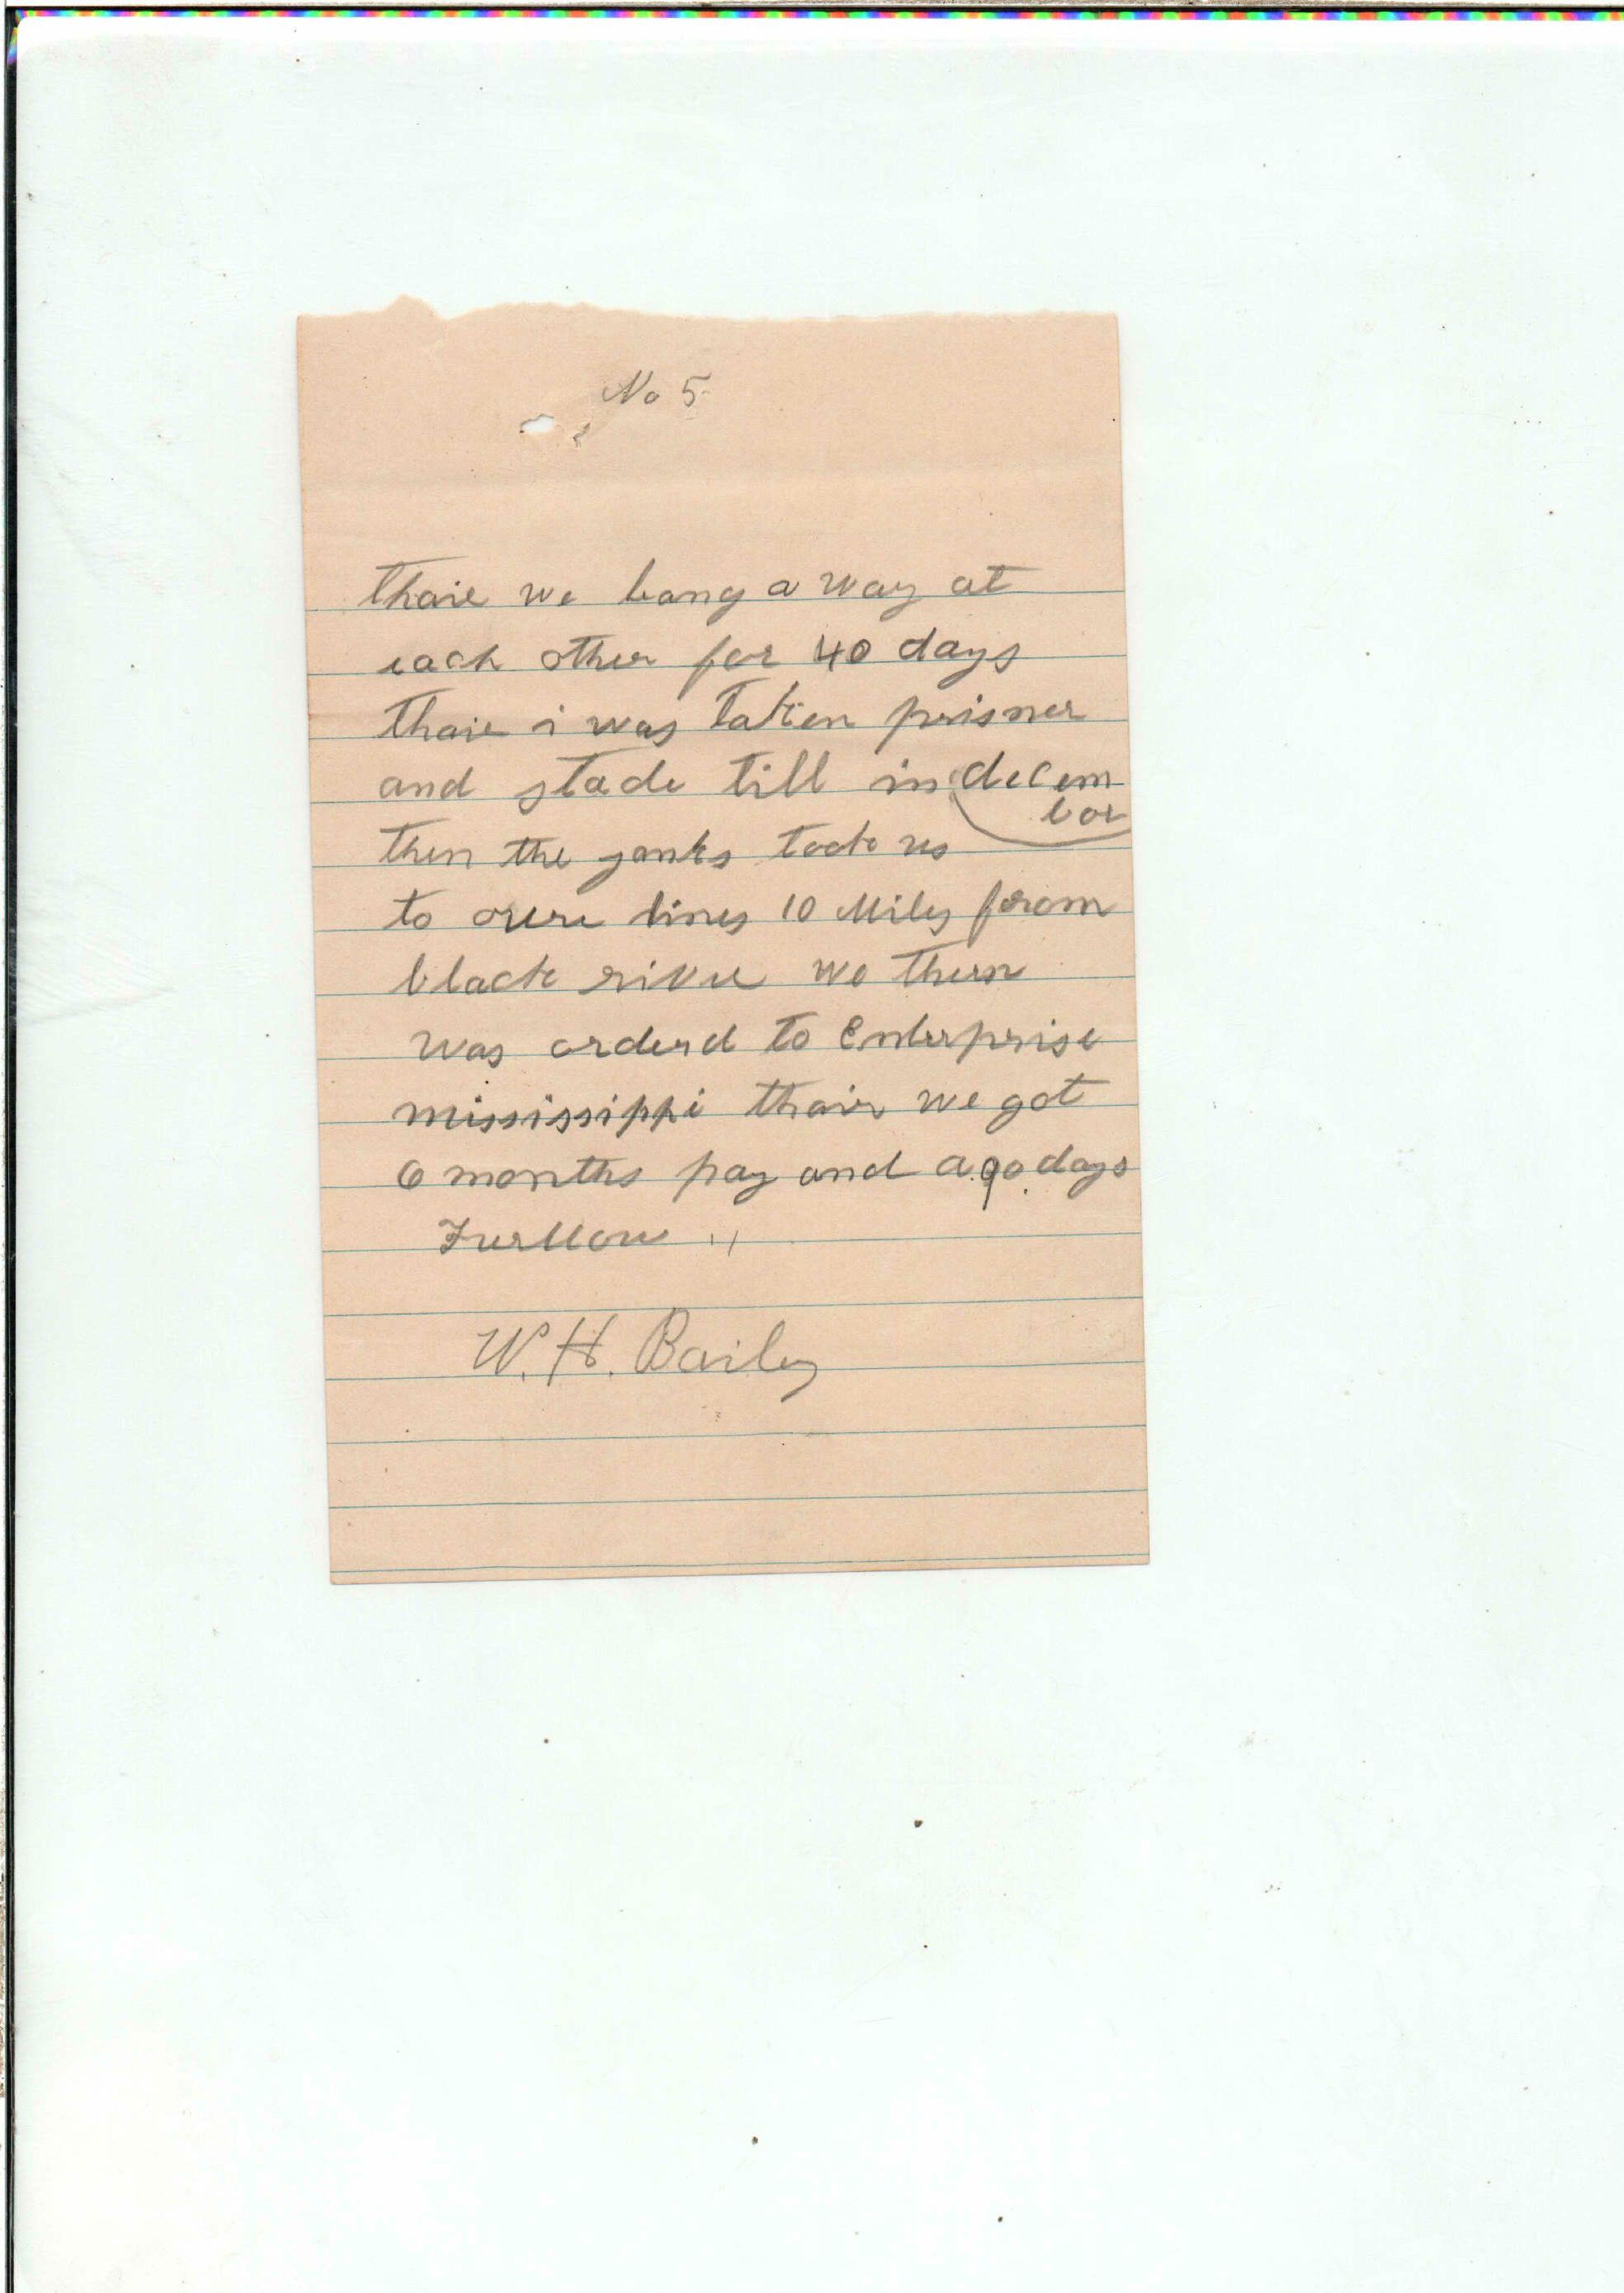 No 5
thair we bang a way at
each other for 40 days
thair i was taken prisner
and stade till in decem
bor
then the yanks took us
to overe lines 10 Miles from
black river we then
was orderd to Enterprise
mississippi thair we got
6 months pay and a 90 days
Furllow
W. H. Bailey